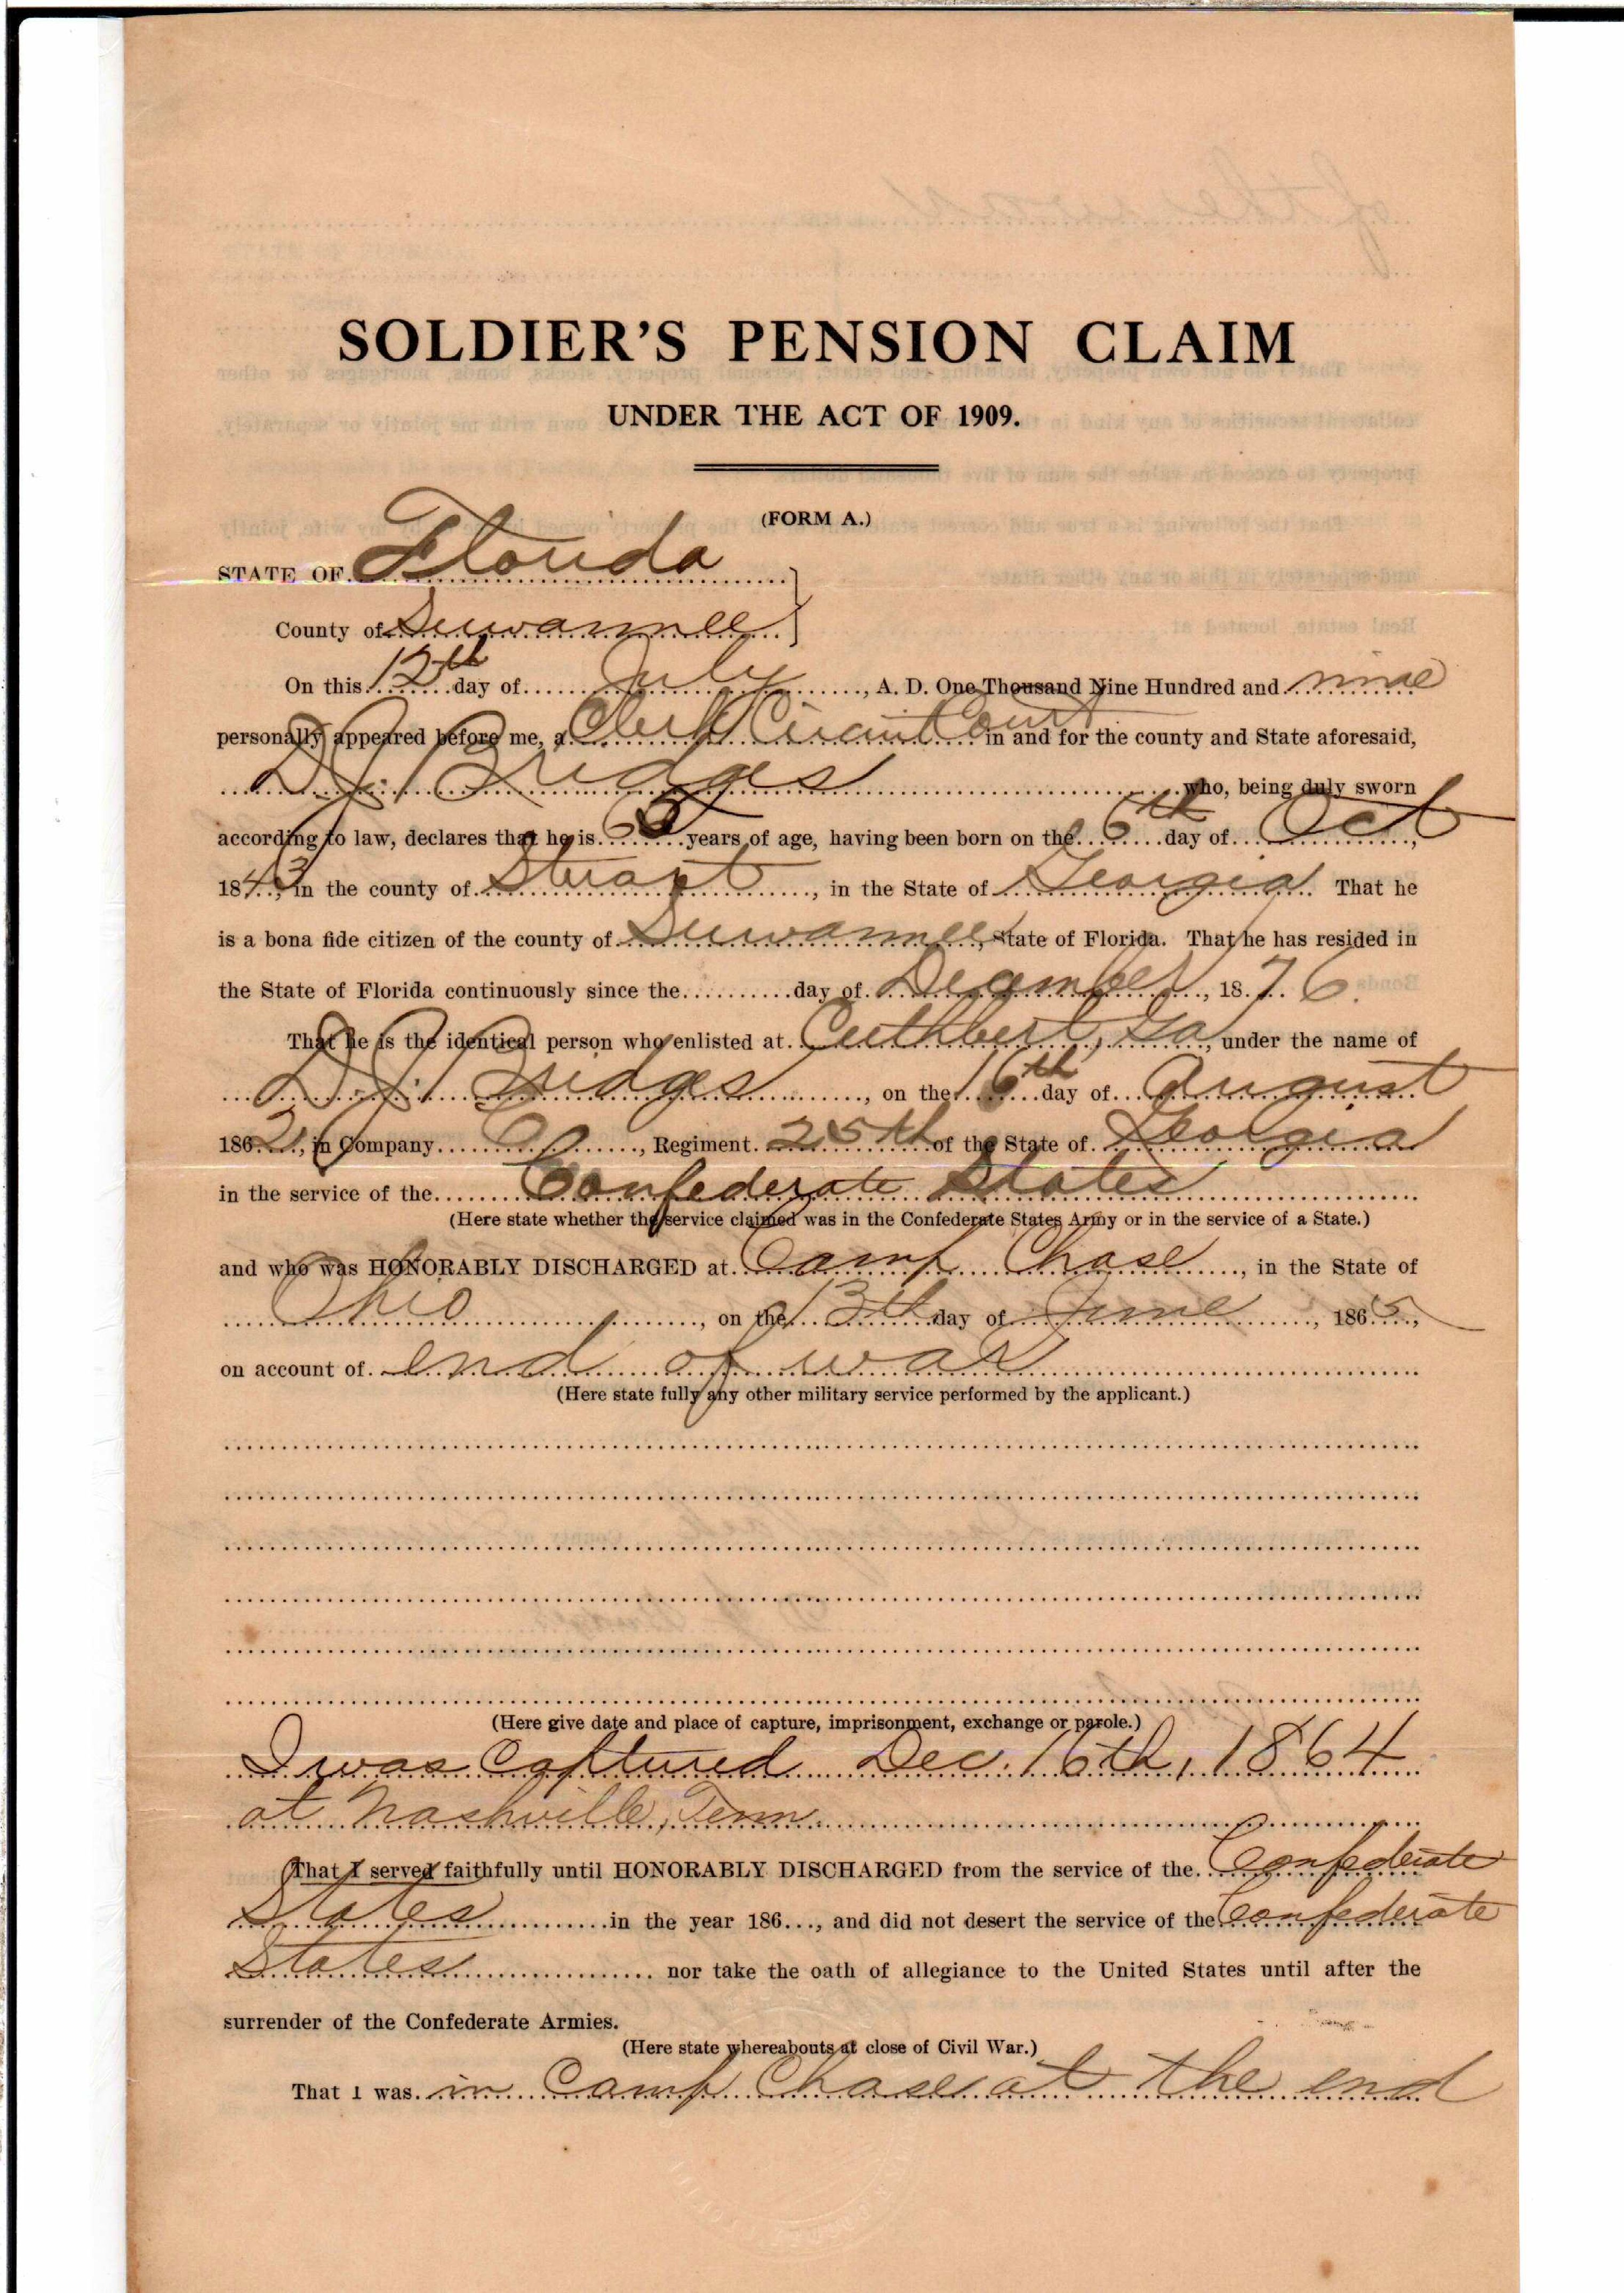 SOLDIER'S PENSION CLAIM
UNDER THE ACT OF 1909.
(FORM A.)
STATE OF Florida
County of Suwannee
On this 12th day of July, A. D. One Thousand Nine Hundred and nine
personally appeared before me, a Clerk Circuit Court in and for the county and State aforesaid,
D. J. Bridges who, being duly sworn
according to law, declares that he is 65 years of age, having been born on the 6th day of Oct,
1843, in the county of Sturart, in the State of Georgia. That he
is a bona fide citizen of the county of Suwannee, State of Florida. That he has resided in
the State of Florida continuously since the day of December, 1876.
That he is the identical person who enlisted at Cuthbert, Ga, under the name of
D. J. Bridges, on the 16th day of August
1862, in Company, Regiment 25th of the State of Georgia
in the service of the Confederate States
(Here state whether the service claimed was in the Confederate States Army or in the service of a State.)
and who was HONORABLY DISCHARGED at Camp Chase, in the State of
Ohio, on the 13th day of June, 1865,
on account of end of war
(Here state fully any other military service performed by the applicant.)
(Here give date and place of capture, imprisonment, exchange or parole.)
I was Captured Dec. 16th, 1864
at Nashville, Tenn.
That I served faithfully until HONORABLY DISCHARGED from the service of the Confederate
States in the year 186..., and did not desert the service of the Confederate
States nor take the oath of allegiance to the United States until after the
surrender of the Confederate Armies.
(Here state whereabouts at close of Civil War.)
That I was in Camp Chase at the end